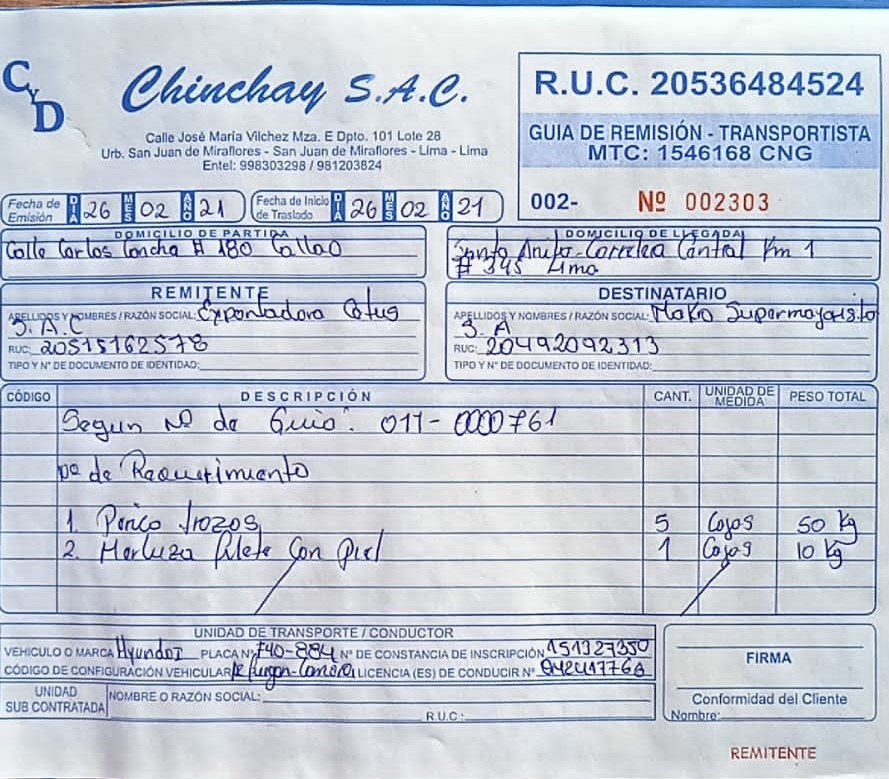 CyD
Chinchay S.A.C.
Calle José María Vilchez Mza. E Dpto. 101 Lote 28
Urb. San Juan de Miraflores - San Juan de Miraflores - Lima - Lima
Entel: 998303298 / 981203824
R.U.C. 20536484524
GUIA DE REMISIÓN - TRANSPORTISTA
MTC: 1546168 CNG
002- Nº 002303
Fecha de Emisión DIA 26 MES 02 AÑO 21
Fecha de Inicio de Traslado DIA 26 MES 02 AÑO 21
DOMICILIO DE PARTIDA
Calle Carlos Concha # 180 Callao
DOMICILIO DE LLEGADA
Santa Anita-Carretera Central Km 1
# 345 Lima
REMITENTE
APELLIDOS Y NOMBRES / RAZÓN SOCIAL: Exportadora Cetus
S.A.C
RUC: 20515162578
TIPO Y Nº DE DOCUMENTO DE IDENTIDAD:
DESTINATARIO
APELLIDOS Y NOMBRES / RAZÓN SOCIAL: Makro Supermayorista
S.A
RUC: 20492092313
TIPO Y Nº DE DOCUMENTO DE IDENTIDAD:
CÓDIGO DESCRIPCIÓN CANT. UNIDAD DE MEDIDA PESO TOTAL
Segun Nº de Guia: 011-0000761
Nº de Requerimiento
1. Perico trozos 5 Cajas 50 Kg
2. Merluza filete Con Piel 1 Cajas 10 Kg
UNIDAD DE TRANSPORTE / CONDUCTOR
VEHICULO O MARCA Hyundai PLACA Nº F40-884 Nº DE CONSTANCIA DE INSCRIPCIÓN 151327350
CÓDIGO DE CONFIGURACIÓN VEHICULAR furgon LICENCIA (ES) DE CONDUCIR Nº
UNIDAD SUB CONTRATADA
NOMBRE O RAZÓN SOCIAL:
R.U.C:
FIRMA
Conformidad del Cliente
Nombre:
REMITENTE